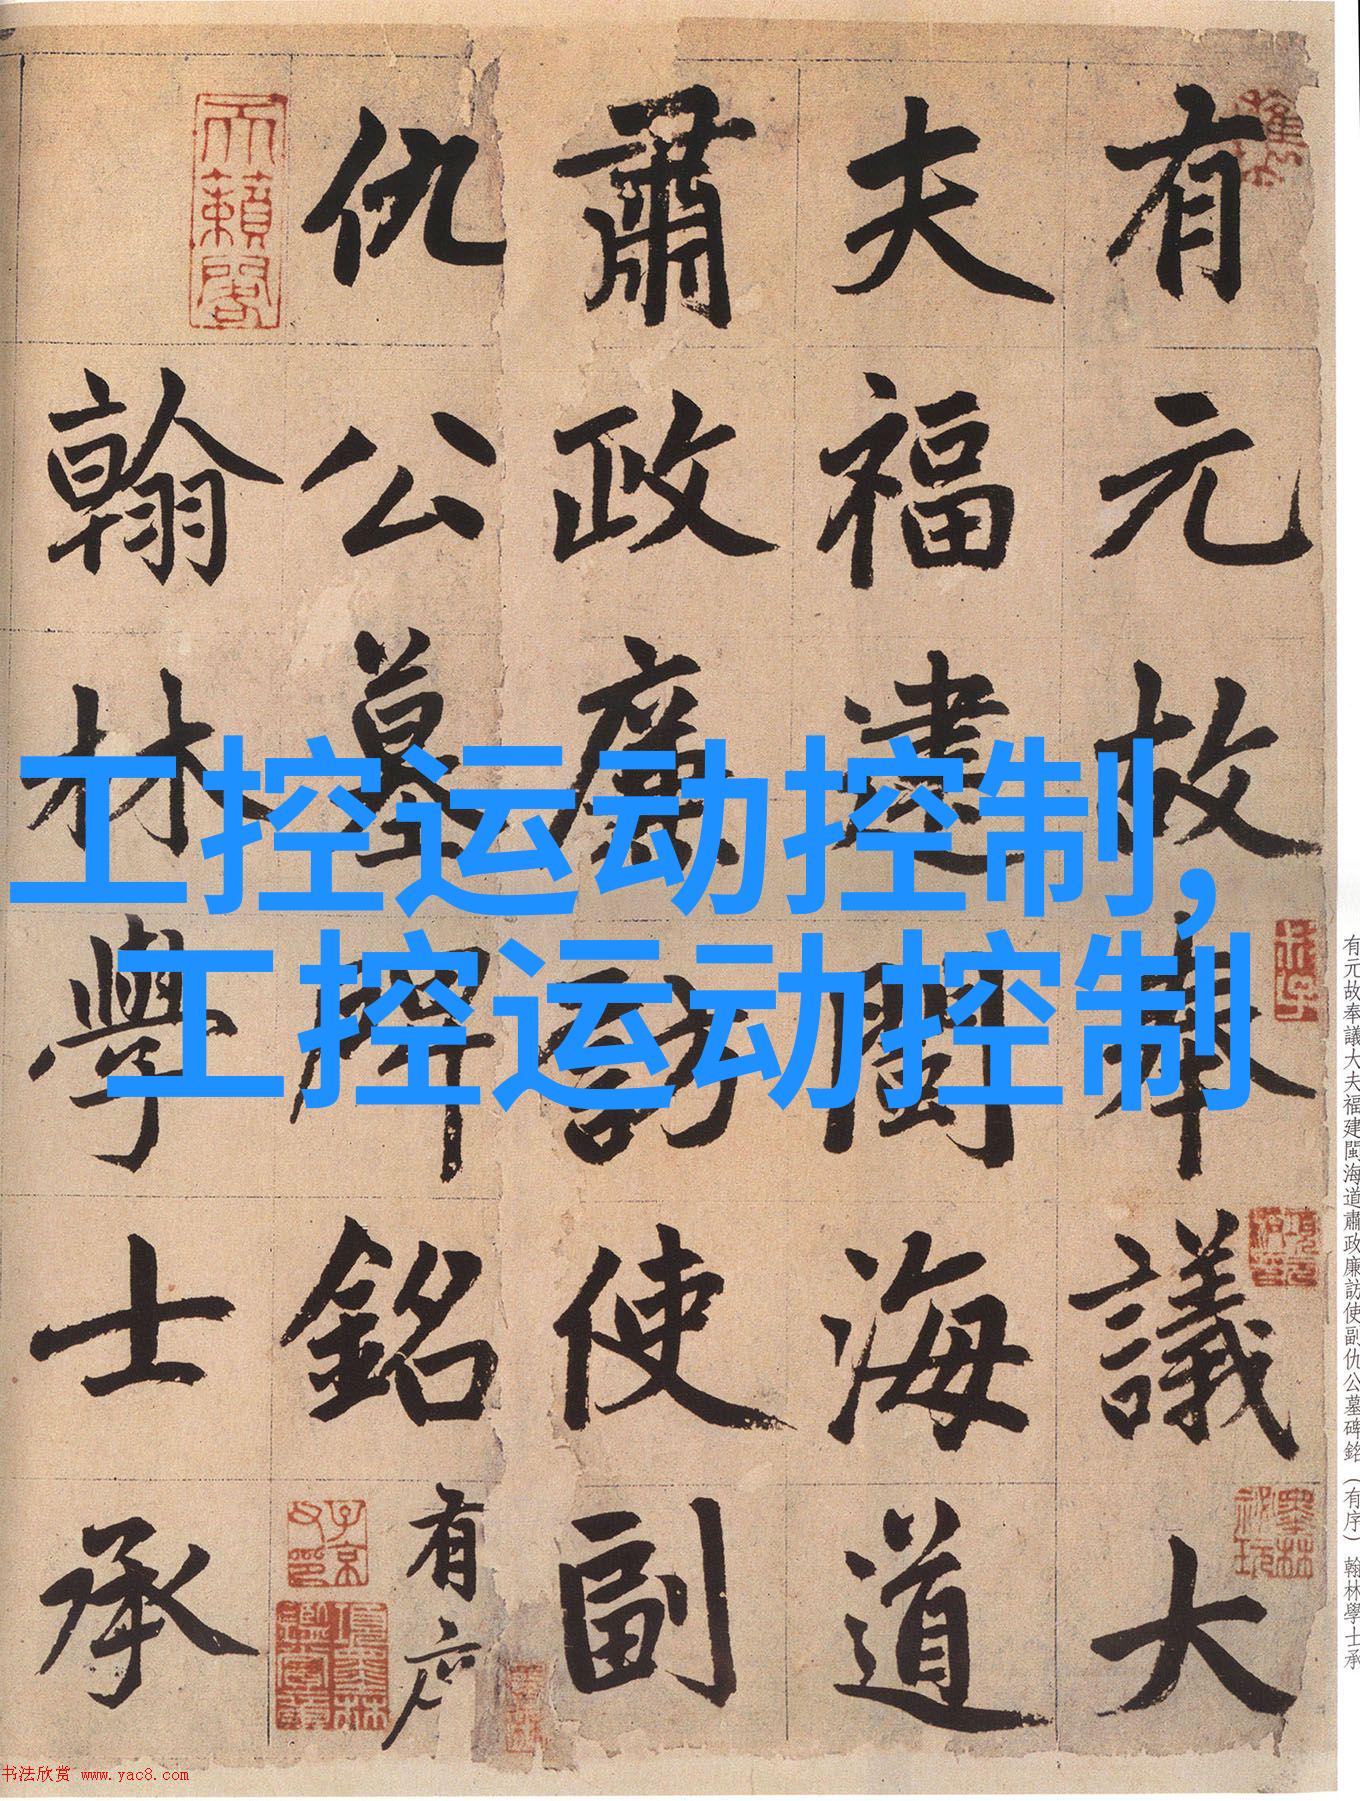 工控运动控制,
工控运动控制
有元故奉議大
夫福建閩海道
肅政廉訪使副
仇公墓碑銘
有序
翰林學士承
天籟閣
子京
有元故奉議大夫福建閩海道肅政廉訪使副仇公墓碑銘(有序)翰林學士承
书法欣赏 www.yac8.com